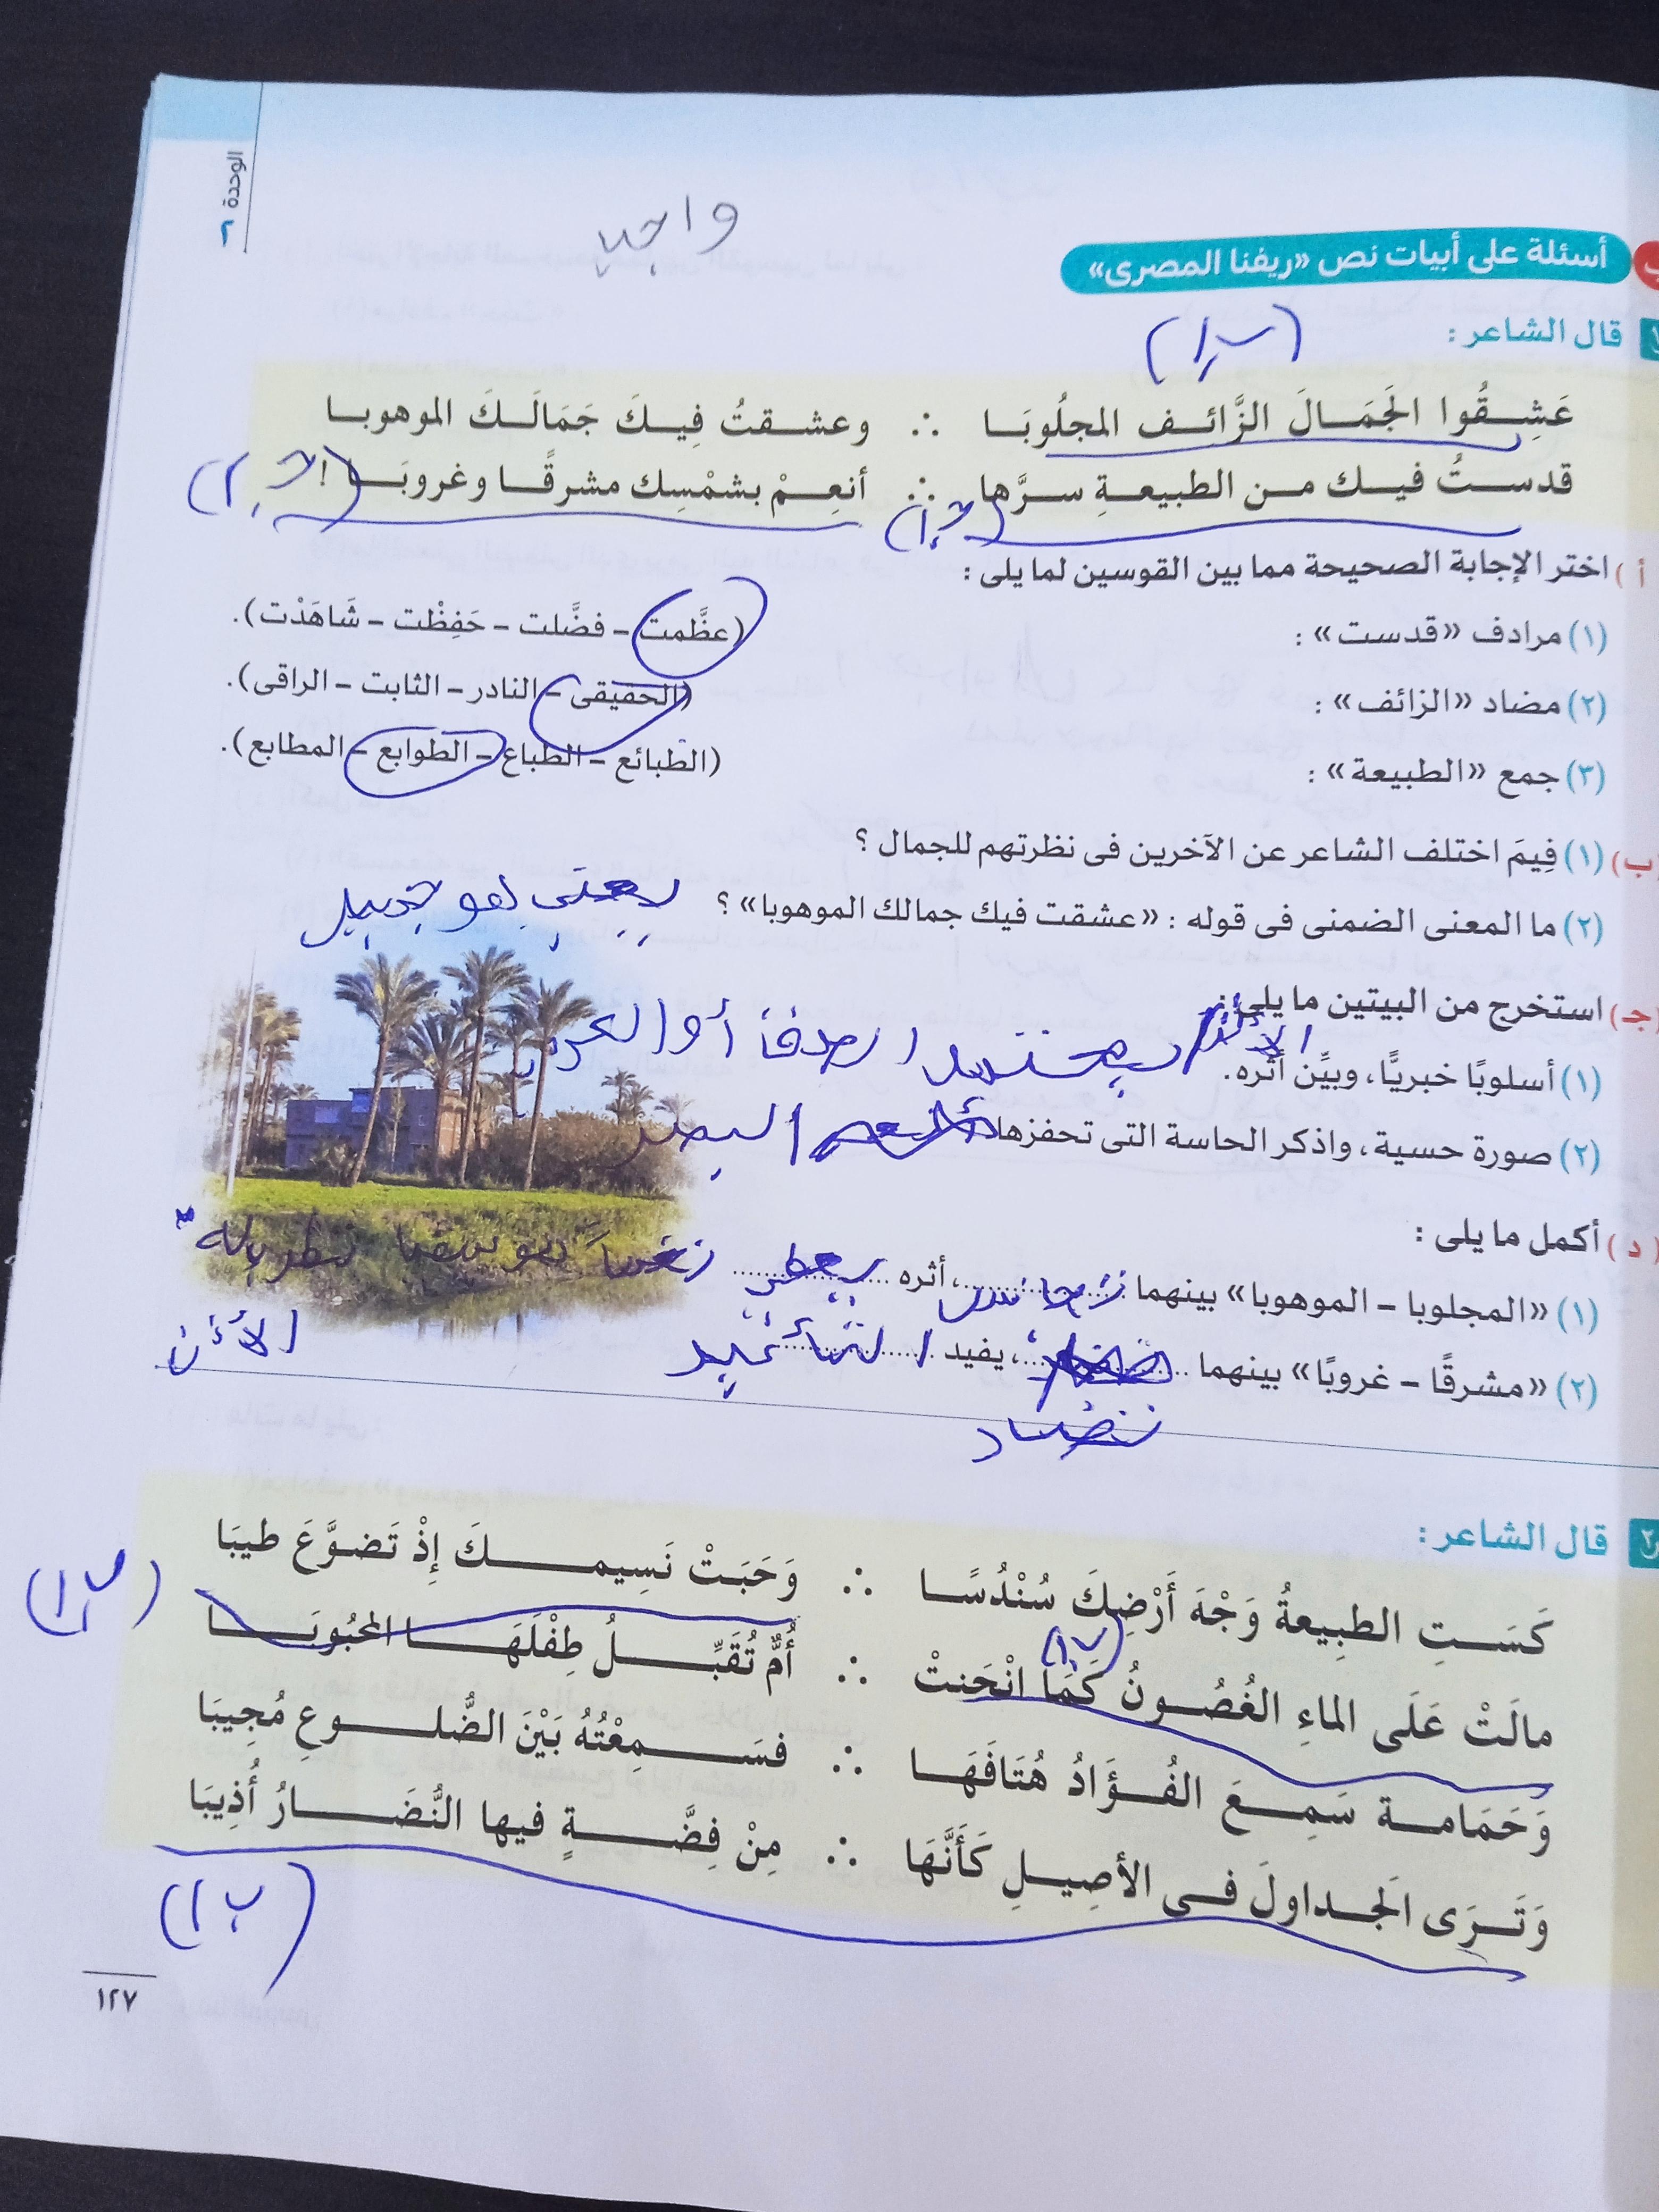 الوحدة ٢
واجب
أسئلة على أبيات نص «ريفنا المصرى»
قال الشاعر :
(ب١)
عَشِقُوا الَجَمَالَ الزَّائف المجلُوبَا ∴ وعشقتُ فِيكَ جَمَالَكَ الموهوبا
قدستُ فيك من الطبيعةِ سرَّها ∴ أنعِمْ بشمْسِك مشرقًا وغروبَا !
(جـ١)
(جـ٢)
أ ) اختر الإجابة الصحيحة مما بين القوسين لما يلى :
(١) مرادف «قدست» : (عظَّمت – فضَّلت – حَفِظْت – شَاهَدْت).
(٢) مضاد «الزائف» : (الحقيقى – النادر – الثابت – الراقى).
(٣) جمع «الطبيعة» : (الطبائع – الطباع – الطوابع – المطابع).
ب) (١) فِيمَ اختلف الشاعر عن الآخرين فى نظرتهم للجمال ؟
(٢) ما المعنى الضمنى فى قوله : «عشقت فيك جمالك الموهوبا» ؟ يعنى هو جميل
جـ) استخرج من البيتين ما يلى :
(١) أسلوبًا خبريًّا، وبيِّن أثره.
(٢) صورة حسية، واذكر الحاسة التى تحفزها البصر
د ) أكمل ما يلى :
(١) «المجلوبا – الموهوبا» بينهما ..........، أثره ..........
(٢) «مشرقًا – غروبًا» بينهما ..........، يفيد ..........
تضاد
الأذن
٢ قال الشاعر :
كَسَتِ الطبِيعةُ وَجْهَ أَرْضِكَ سُنْدُسًا ∴ وَحَبَتْ نَسِيمكَ إِذْ تَضوَّعَ طيبَا
مالَتْ عَلَى الماءِ الغُصُونُ كَمَا انْحَنتْ ∴ أُمٌّ تُقَبِّلُ طِفْلَهَا المحْبُوبَا
وَحَمَامة سَمِعَ الفُؤَادُ هُتَافَهَا ∴ فسَمِعْتُهُ بَيْنَ الضُّلوعِ مُجِيبَا
وَتَرَى الَجداولَ فى الأصِيلِ كَأَنَّهَا ∴ مِنْ فِضَّةٍ فيها النُّضَارُ أُذِيبَا
(ب١)
١٢٧